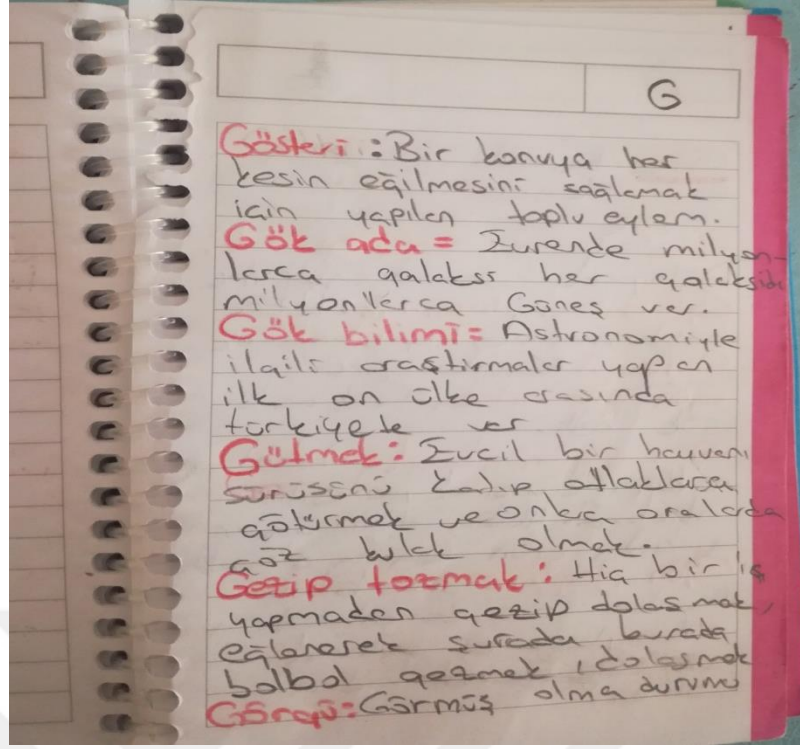 G
Gösteri : Bir konuya her
kesin eğilmesini sağlamak
için yapılan toplu eylem.
Gök ada = Evrende milyon-
larca galaksi her galakside
milyonlarca Güneş var.
Gök bilimi = Astronomiyle
ilgili araştırmalar yapan
ilk on ülke arasında
türkiyete var
Gütmek : Evcil bir hayvan
sürüsünü otlaklara
götürmek ve onlara oralarda
göz kulak olmak.
Gezip tozmak : Hiç bir iş
yapmadan gezip dolaşmak,
eğlenerek şurada burada
bolbol gezmek, dolaşmak
Görgü : Görmüş olma durumu